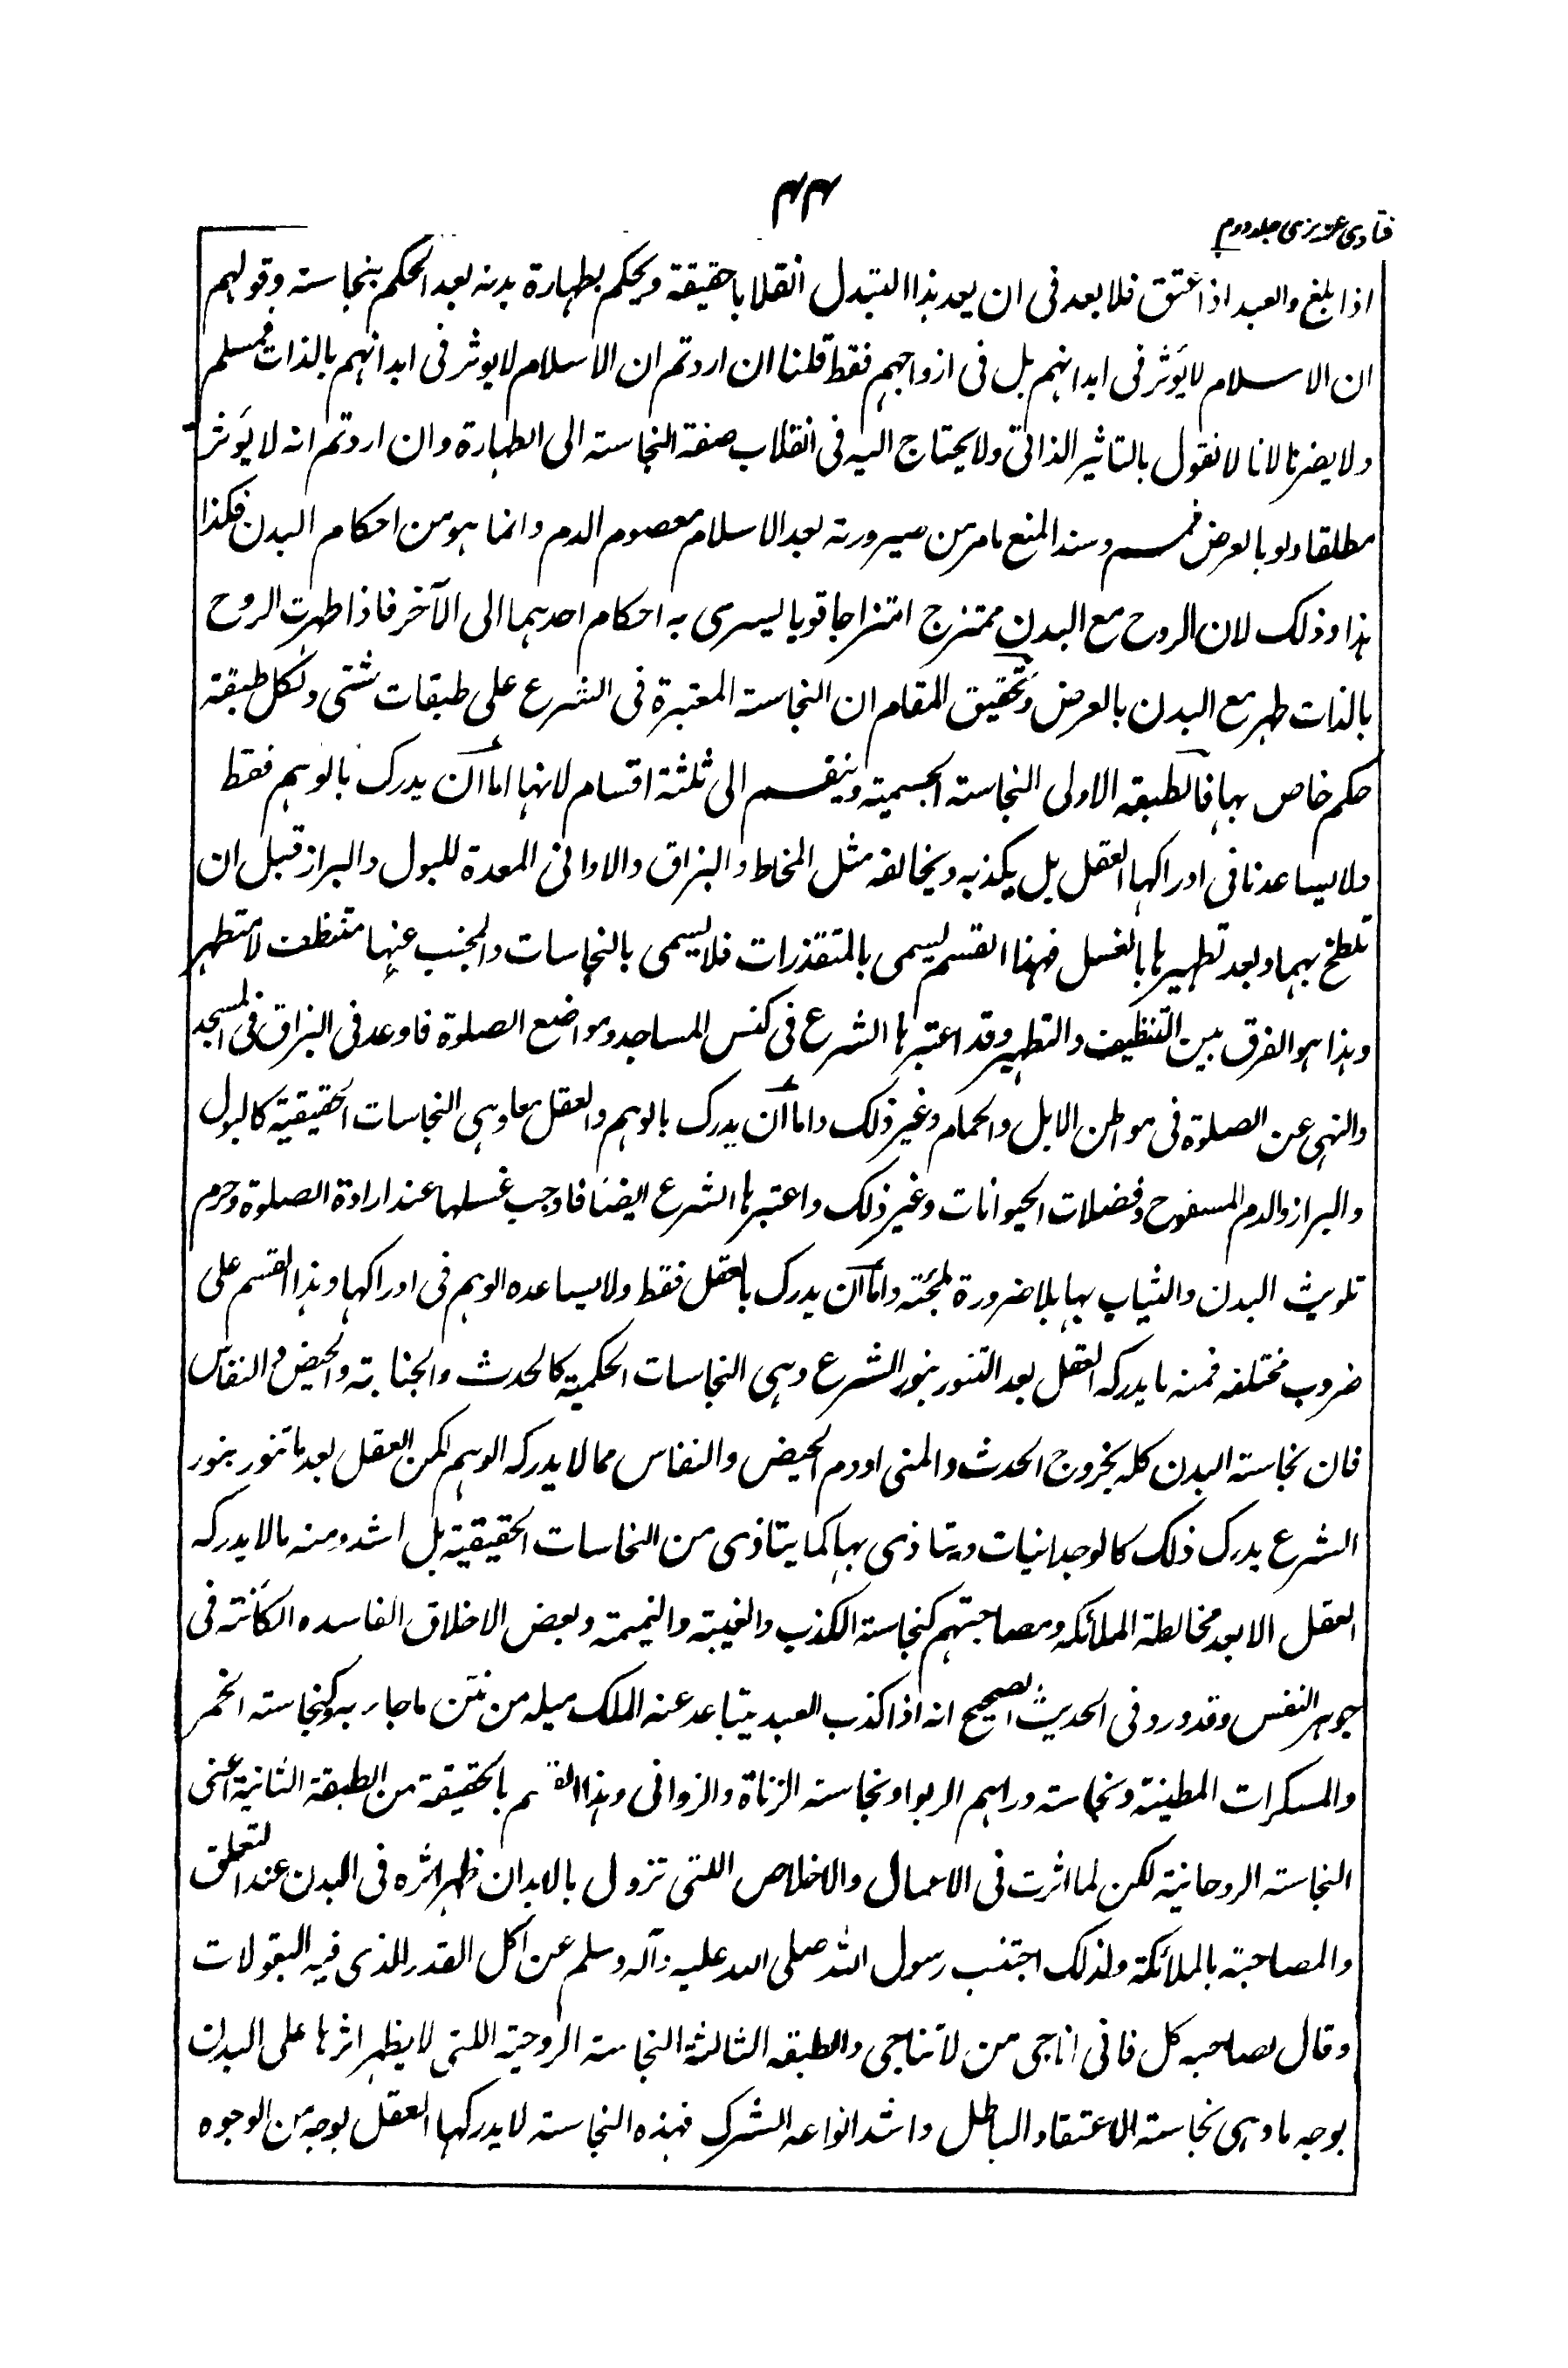 ۴۴
فتاوی عزیزی جلد دوم
اذا بلغ والعبد اذا عتق فلا بعد فی ان یعد ہذا التبدل انقلابا حقیقۃ ویحکم بطہارۃ بدنہ بعد الحکم بنجاستہ وقولہم
ان الاسلام لا یؤثر فی ابدانہم بل فی ازواجہم فقط قلنا ان اردتم ان الاسلام لا یوثر فی ابدانہم بالذات فمسلم
ولا یضرنا لانا لا نقول بالتاثیر الذاتی ولا یحتاج الیہ فی انقلاب صفۃ النجاستہ الی الطہارۃ وان اردتم انہ لا یؤثر
مطلقا ولو بالعرض فمـ وسند المنع مامر من صیرورتہ بعد الاسلام معصوم الدم وانما ہو من احکام البدن فکذا
ہذا وذلک لان الروح مع البدن ممتزج امتزاجا قویا لیسری بہ احکام احدہما الی الآخر فاذا طہرت الروح
بالذات طہر مع البدن بالعرض وتحقیق المقام ان النجاستہ المعتبرۃ فی الشرع علی طبقات شتی ولکل طبقۃ
حکم خاص بہا فالطبقہ الاولی النجاستہ الجسمیتہ وینقسم الی ثلثۃ اقسام لانہا اما ان یدرک بالوہم فقط
ولا یساعدنا فی ادراکہا العقل بل یکذبہ ویخالفہ مثل المخاط والبزاق والاوانی المعدۃ للبول والبراز قبل ان
تلطخ بہما وبعد تطہیرہا بالغسل فہذا القسم یسمی بالمتقذرات فلا یسمی بالنجاسات والمجنب عنہا متنظف لا متطہر
وہذا ہو الفرق بین التنظیف والتطہیر وقد اعتبرہا الشرع فی کنس المساجد ومواضع الصلوۃ فاوعد فی البزاق فی المسجد
والنہی عن الصلوۃ فی مواطن الابل والحمام وغیر ذلک واما ان یدرک بالوہم والعقل معا وہی النجاسات الحقیقیۃ کالبول
والبراز والدم المسفوح وفضلات الحیوانات وغیر ذلک واعتبرہا الشرع ایضا فاوجب غسلہا عند ارادۃ الصلوۃ وحرم
تلویث البدن والثیاب بہا بلا ضرورۃ ملجئتہ واما ان یدرک بالعقل فقط ولا یساعدہ الوہم فی ادراکہا وہذا القسم علی
ضروب مختلفہ فمنہ ما یدرکہ العقل بعد التنور بنور الشرع وہی النجاسات الحکمیۃ کالحدث والجنابتہ والحیض والنفاس
فان نجاستہ البدن کلہ بخروج الحدث والمنی اودم الحیض والنفاس مما لا یدرکہ الوہم لکن العقل بعد ما تنور بنور
الشرع یدرک ذلک کالوجدانیات ویتاذی بہا کما یتاذی من النجاسات الحقیقیۃ بل اشد ومنہ ما لا یدرکہ
العقل الا بعد مخالطۃ الملائکہ ومصاحبتہم کنجاستہ الکذب والغیبتہ والنمیمتہ وبعض الاخلاق الفاسدہ الکائنتہ فی
جوہر النفس وقد ورد فی الحدیث الصحیح انہ اذا کذب العبد یتباعد عنہ الملک میلہ من نتن ماجاء بہ وکنجاستہ الخمر
والمسکرات المطینۃ ونجاستہ دراہم الربوا ونجاستہ الزناۃ والزوانی وہذا القسم بالحقیقۃ من الطبقۃ الثانیۃ اعنی
النجاستہ الروحانیۃ لکن لما اثرت فی الاعمال والاخلاص اللتی تزول بالابدان ظہر اثرہ فی البدن عند التعلق
والمصاحبتہ بالملائکۃ ولذلک اجتنب رسول اللہ صلی اللہ علیہ وآلہ وسلم عن اکل القدر للذی فیہ البقولات
وقال لصاحبہ کل فانی اناجی من لا تناجی والطبقہ الثالثۃ النجاستہ الروحیتہ اللتی لا یظہر اثرہا علی البدن
بوجہ ما وہی نجاستہ الاعتقاد الباطل واشد انواعہ الشرک فہذہ النجاستہ لا یدرکہا العقل بوجہ من الوجوہ